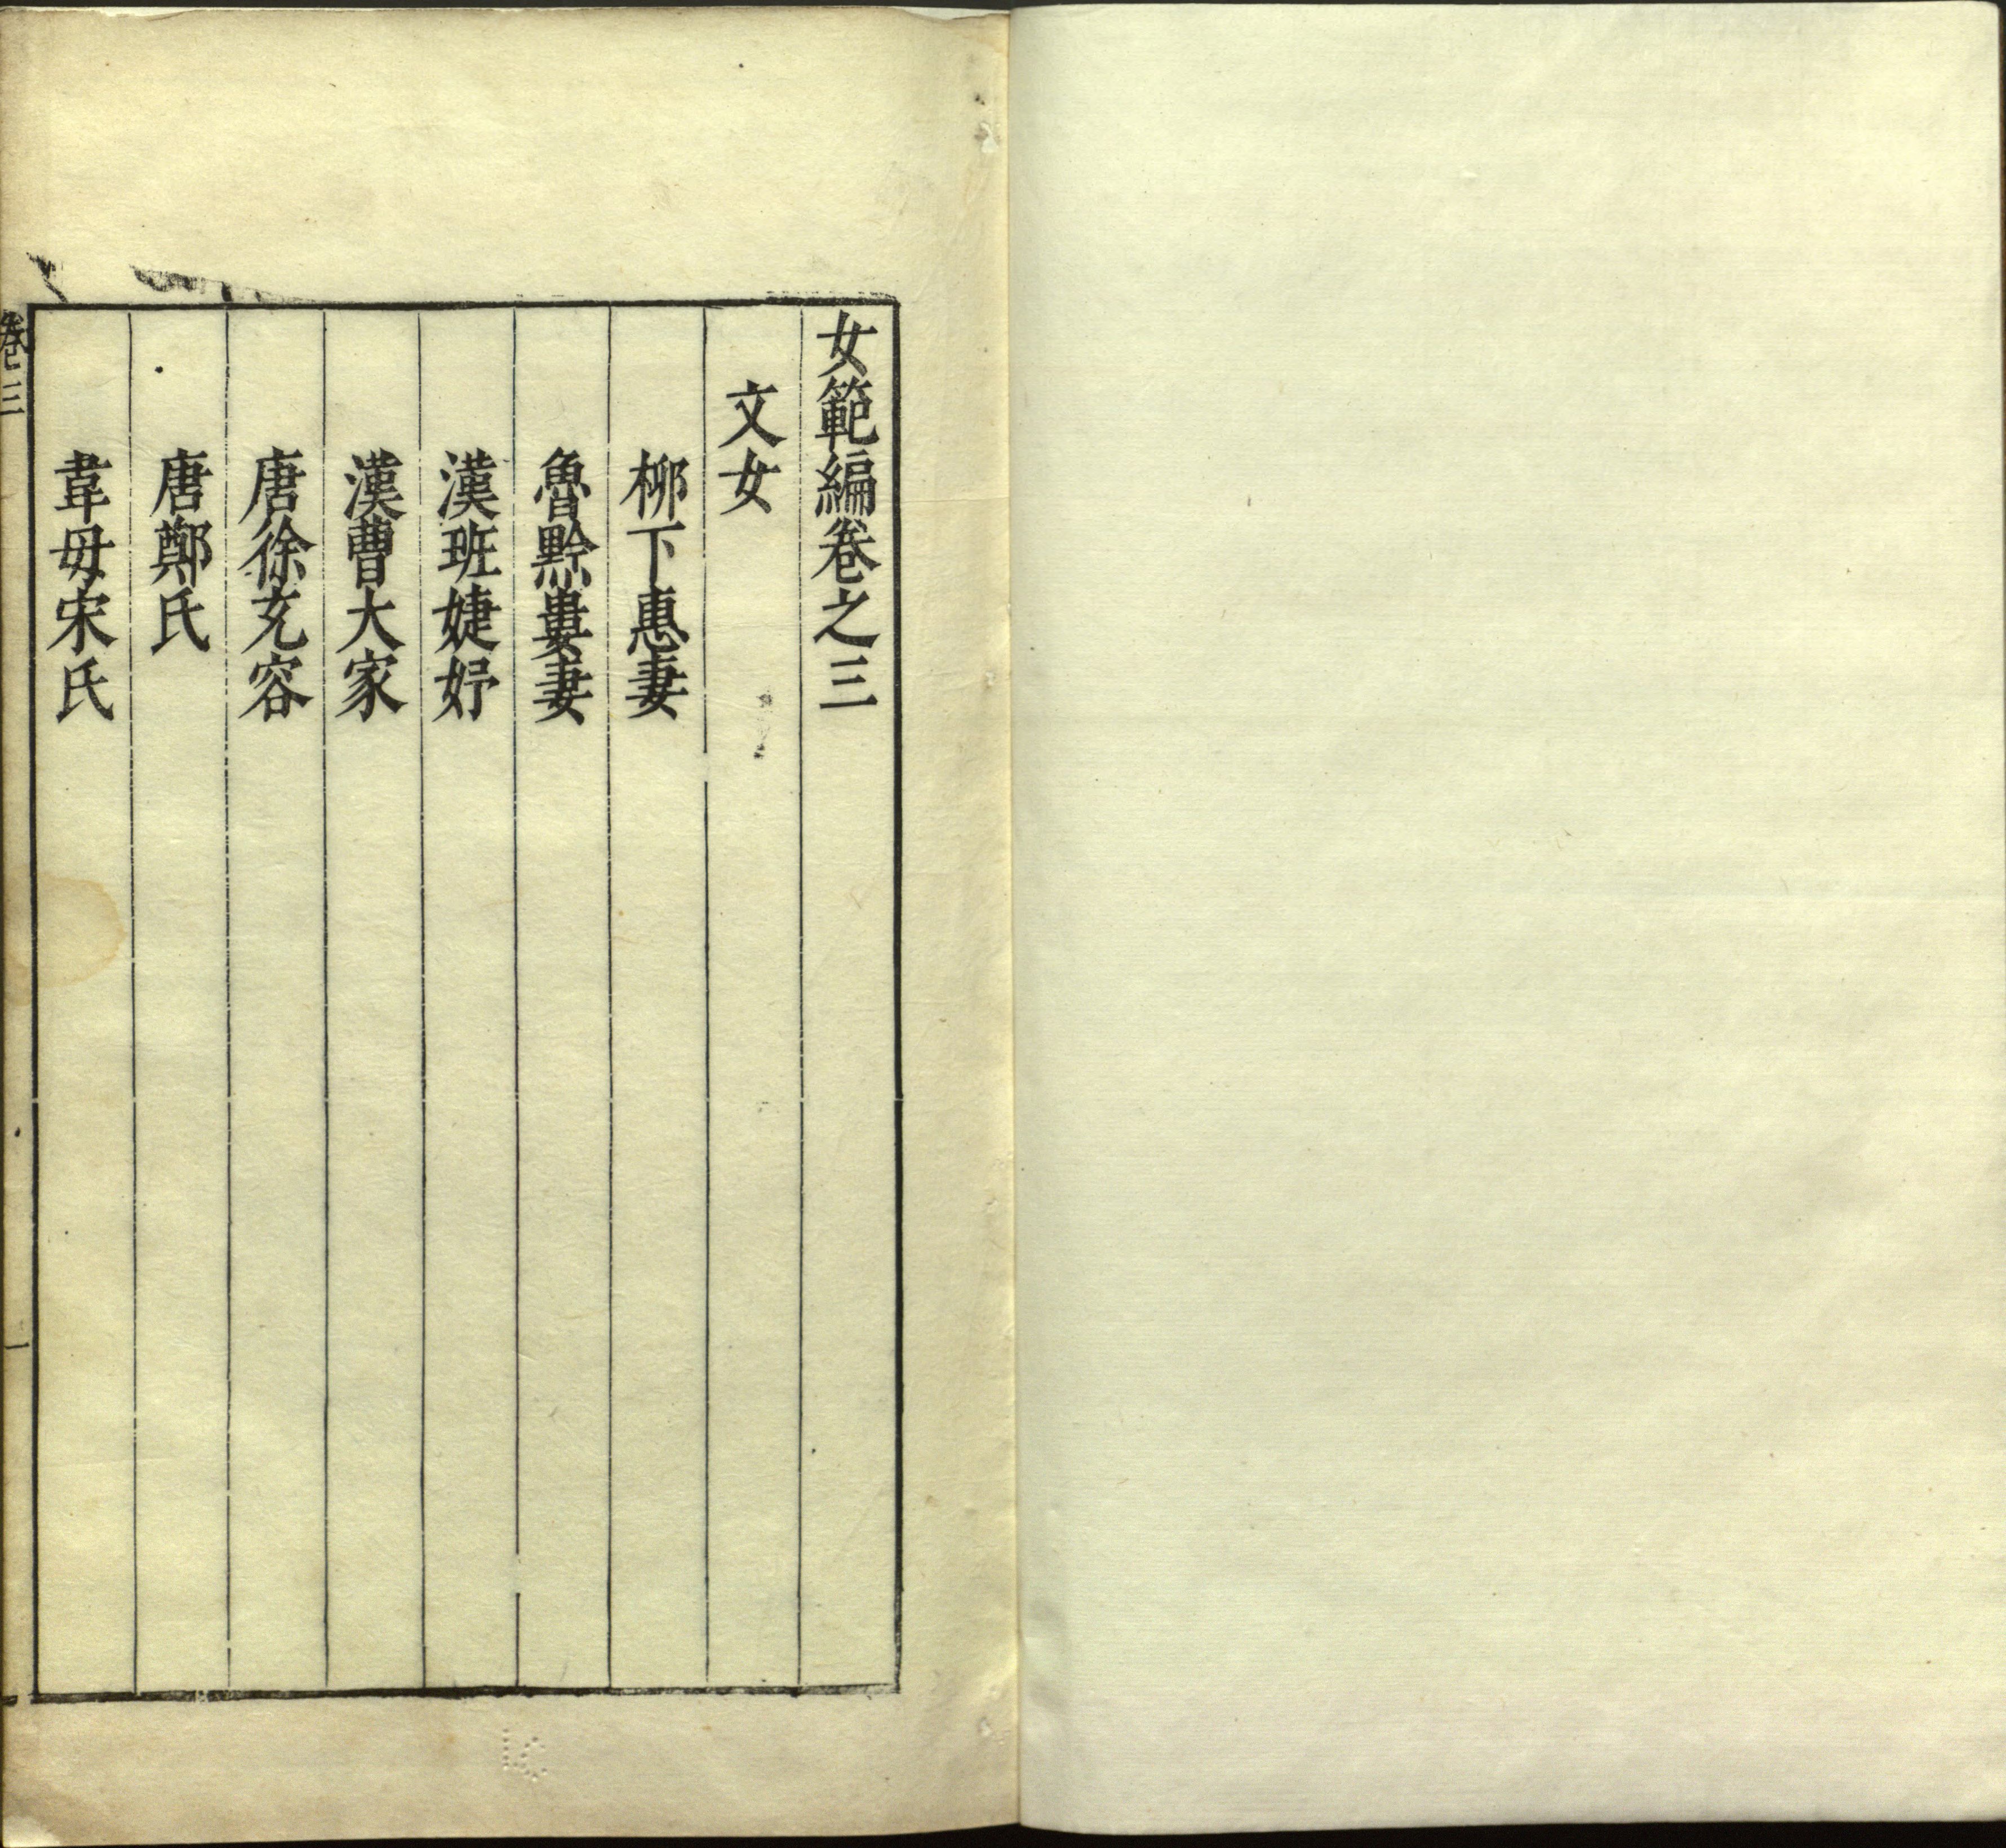 女範編卷之三
文女
柳下惠妻
魯黔婁妻
漢班婕妤
漢曹大家
唐徐充容
唐鄭氏
韋母宋氏
卷三
一